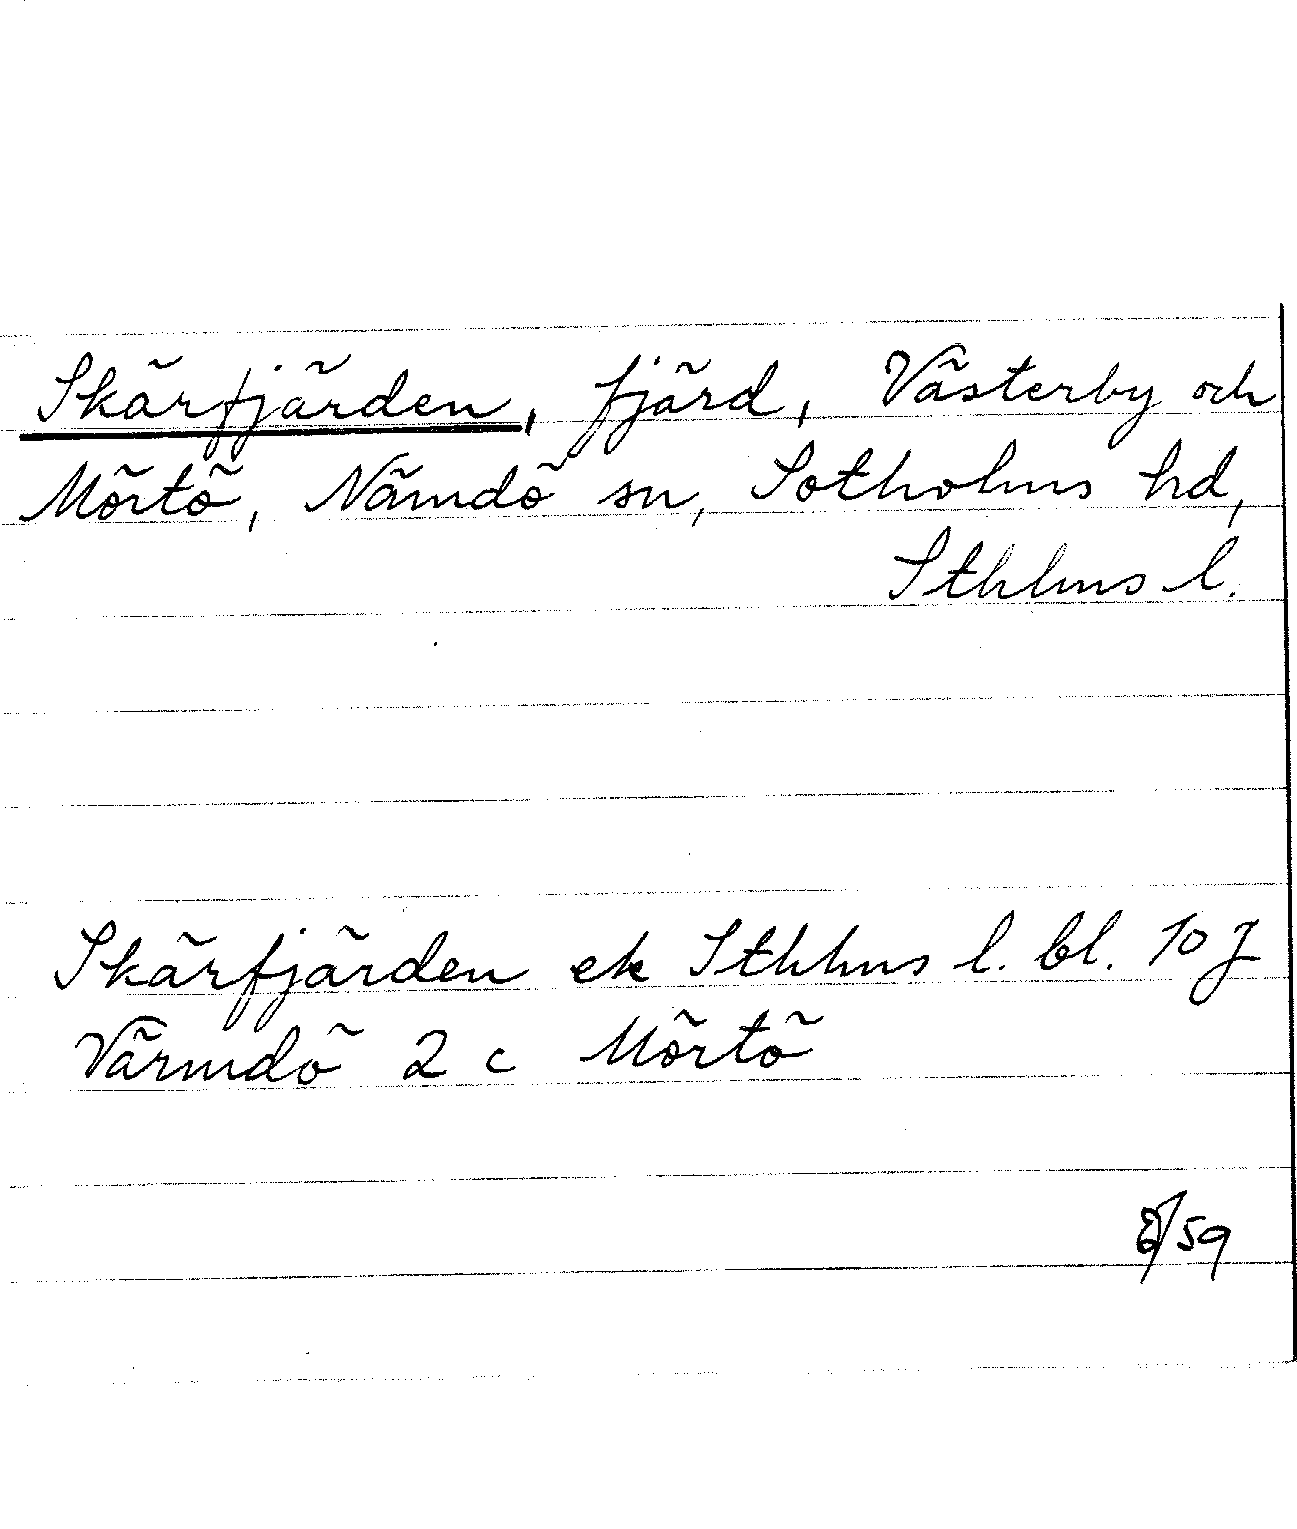 Skärfjärden, fjärd, Västerby och
Mörtö, Nämdö sn, Sotholms hd,
Sthlms l.
Skärfjärden ek Sthlms l. bl. 10 J
Värmdö 2 c Mörtö
/59